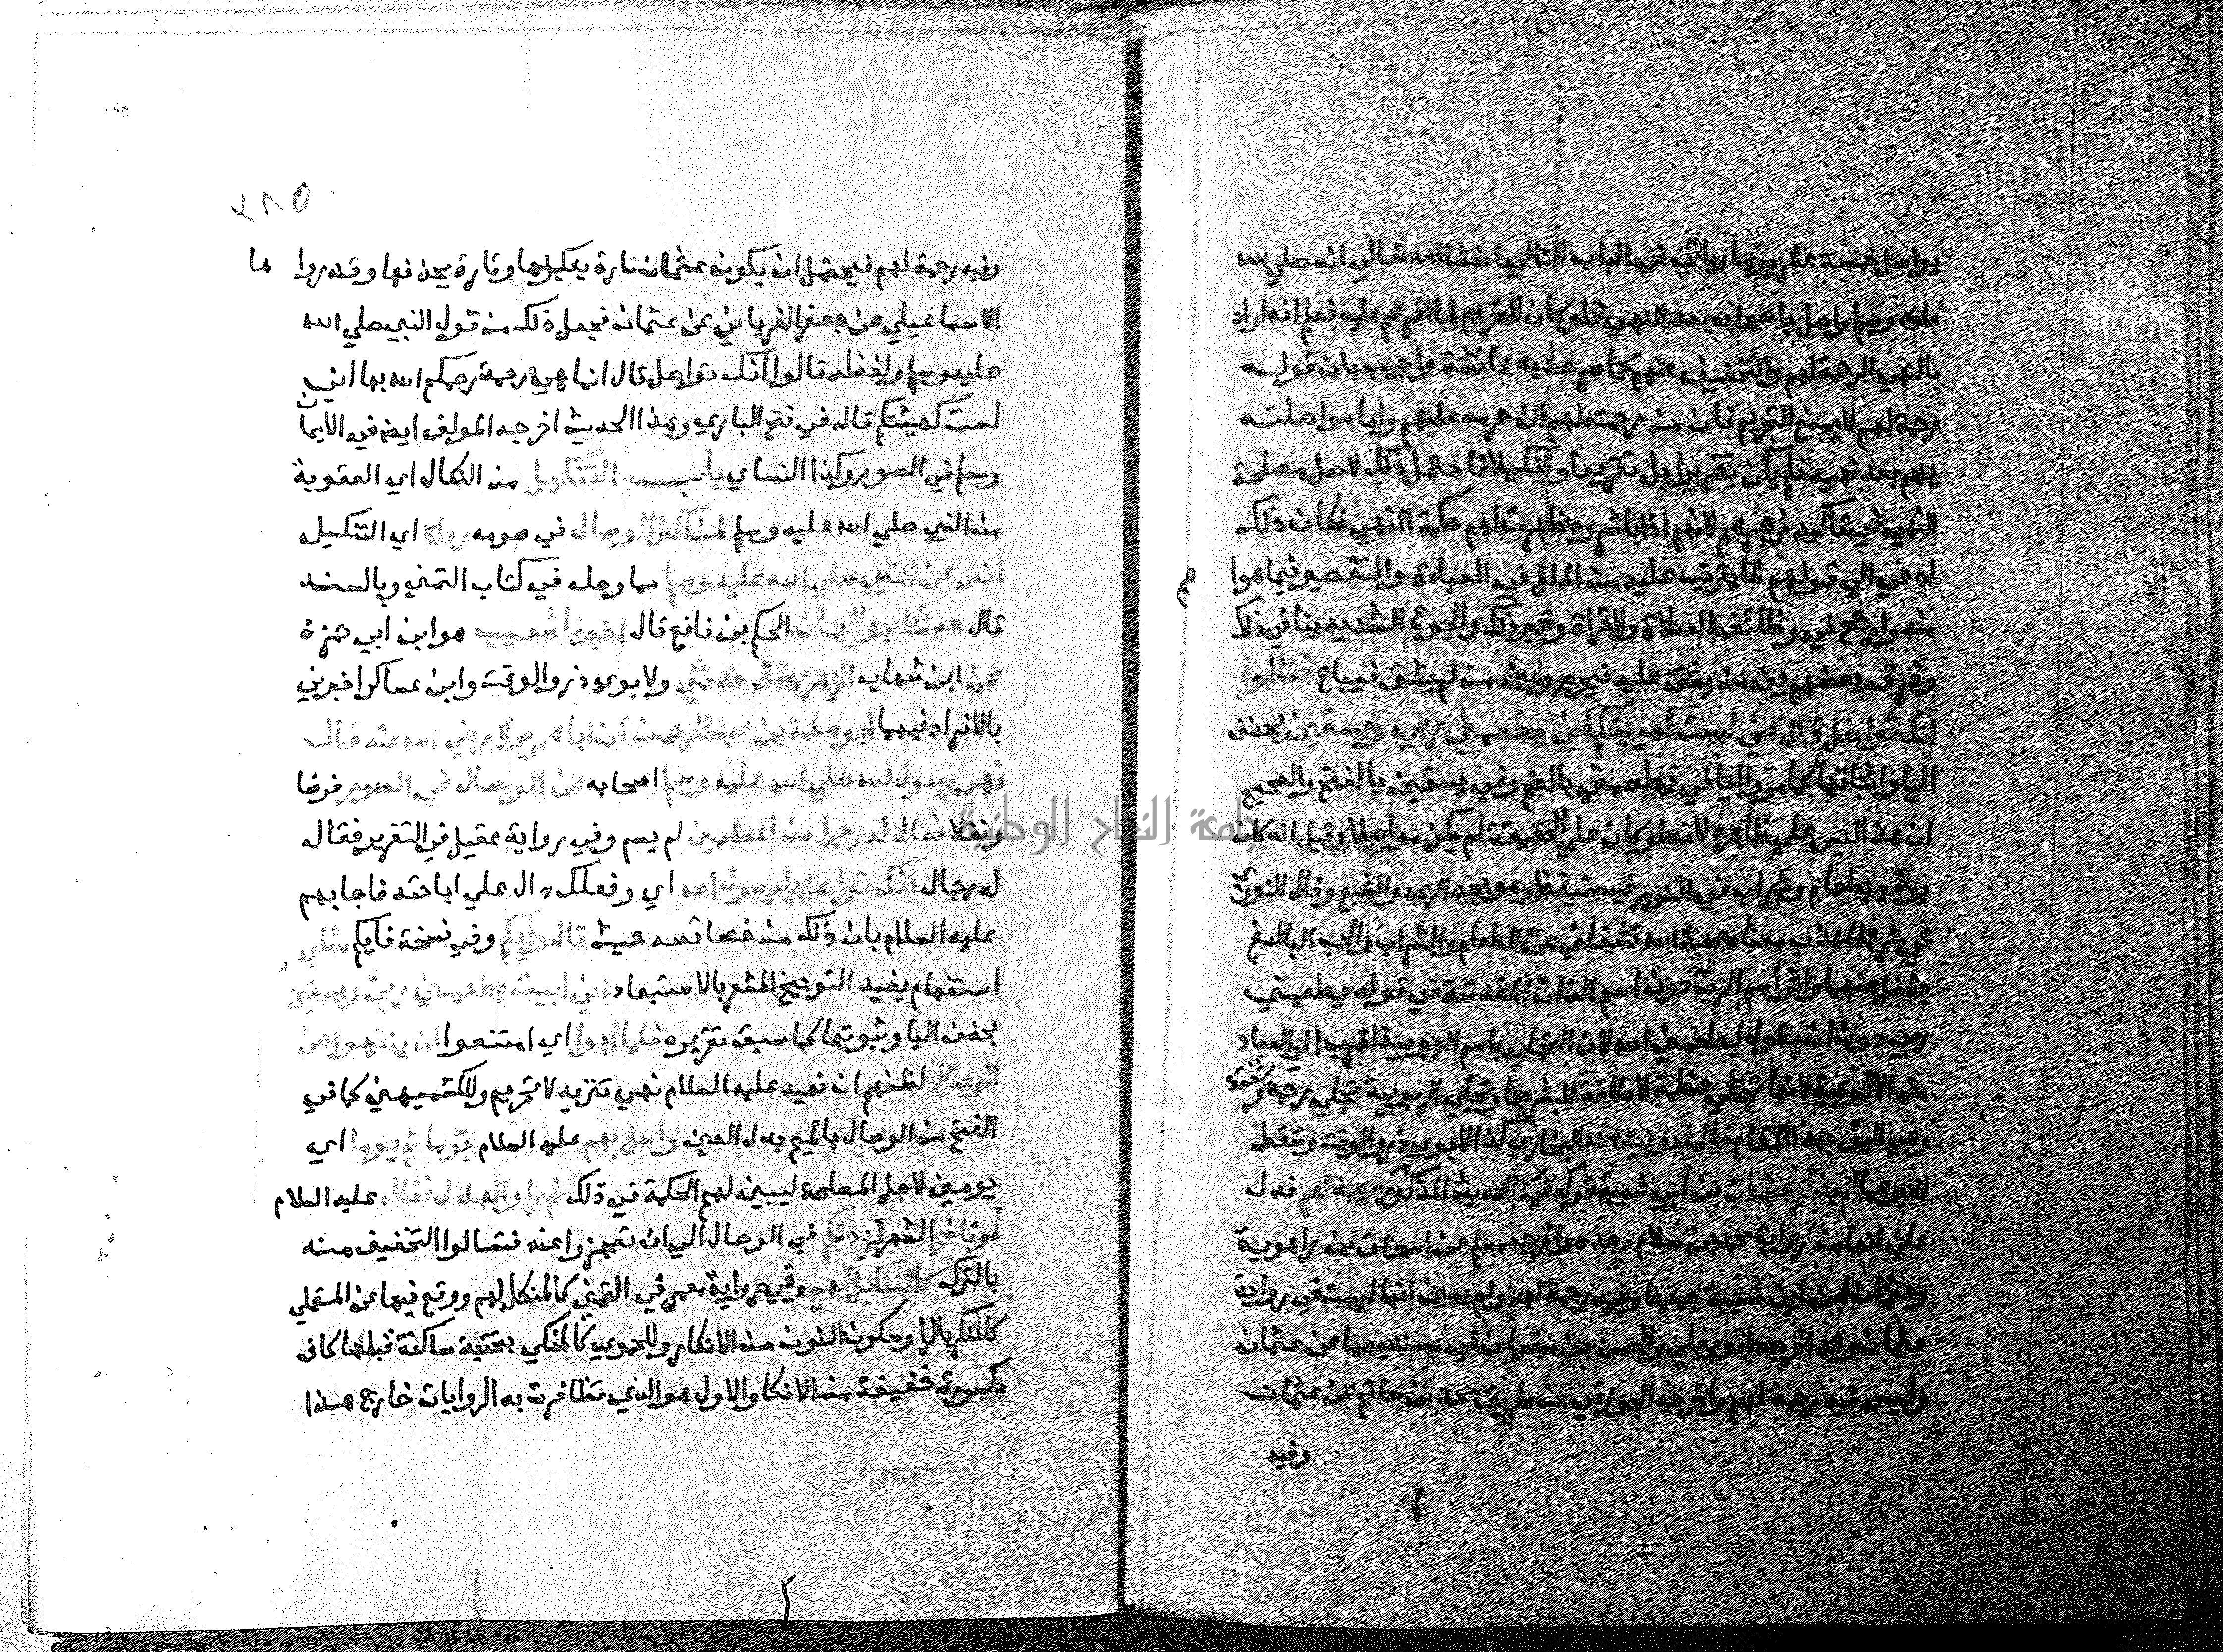 يواصل خمسة عشر يوما وياتي في الباب التالي ان شا الله تعالي انه صلي الله
عليه وسلم واصل باصحابه بعد النهي فلو كان للتحريم لما اقرهم عليه فعلم انه اراد
بالنهي الرحمة لهم والتخفيف عنهم كما صرحت به عائشة واجيب بان قوله
رحمة لهم لا يمنع التحريم فان من رحمته لهم ان حرمه عليهم واما مواصلته
بهم بعد نهيه فلم يكن تقريرا بل تقريعا وتنكيلا فاحتمل ذلك لاجل مصلحة
النهي في تاكيد زجرهم لانهم اذا باشروه ظهرت لهم حكمة النهي فكان ذلك
ادعي الي قولهم لما يترتب عليه من الملل في العبادة والتقصير فيما هوا
منه وارجح في وظائف الصلاة والقراة وغير ذلك والجوع الشديد ينافي ذلك
وفرق بعضهم بين من يشق عليه فيحرم وبين من لم يشق فيباح فقالوا
انك تواصل قال اني لست كهيئتكم اني يطعمني ربي ويسقين بحذف
اليا واثباتها كما مر واليا في يطعمني بالضم وفي يسقين بالفتح والصحيح
ان هذا ليس علي ظاهره لانه لو كان علي الحقيقة لم يكن مواصلا وقيل انه كان
يوتي بطعام وشراب في النوم فيستيقظ وهو يجد الري والشبع وقال النووي
في شرح المهذب معناه محبة الله تشغلني عن الطعام والشراب والحب البالغ
يشغل عنهما واثر اسم الرب دون اسم الذات المقدسة في قوله يطعمني
ربي دون ان يقول يطعمني الله لان التجلي باسم الربوبية اقرب الي العباد
من الالوهية لانها تجلي عظمة لا طاقة للبشر بها وتجلي الربوبية تجلي رحمة وشفقة
وهي اليق بهذا المقام قال ابو عبد الله البخاري كذا لابوي ذر والوقت وسقط
لغيرهما لم يذكر عثمان بن ابي شيبة قوله في الحديث المذكور رحمة لهم فدل
علي انها من رواية محمد بن سلام وحده واخرجه مسلم عن اسحاق بن راهوية
وعثمان ابن ابي شيبة جميعا وفيه رحمة لهم ولم يبين انها ليست في رواية
عثمان وقد اخرجه ابو يعلي والحسن بن سفيان في مسنديهما عن عثمان
وليس فيه رحمة لهم واخرجه الجوزقي من طريق محمد بن حاتم عن عثمان
وفيه
٢٨٥
وفيه رحمة لهم فيحتمل ان يكون عثمان تارة يجعلها وتارة يحذفها وقد روا ها
الاسماعيلي عن جعفر الفريابي عن عثمان فجعل ذلك من قول النبي صلي الله
عليه وسلم ولفظه قالوا انك تواصل قال انما هي رحمة رحمكم الله بها اني
لست كهيئتكم قاله في فتح الباري وهذا الحديث اخرجه المولف ايض في الايمان
ومسلم في الصوم وكذا النساي باب التنكيل من النكال اي العقوبة
من النبي صلي الله عليه وسلم لمن اكثر الوصال في صومه رواه اي التنكيل
انس عن النبي صلي الله عليه وسلم مما وصله في كتاب التمني وبالسند
قال حدثنا ابو اليمان الحكم بن نافع قال اخبرنا شعيب هو ابن ابي حمزة
عن ابن شهاب الزهري قال حدثني ولابوي ذر والوقت وابن عساكر اخبرني
بالافراد فيهما ابو سلمة بن عبد الرحمن ان ابا هريرة رضي الله عنه قال
نهي رسول الله صلي الله عليه وسلم اصحابه عن الوصال في الصوم فرضا
ونفلا فقال له رجل من المسلمين لم يسم وفي رواية عقيل في التقرير فقال
له رجال انك تواصل يا رسول الله اي وفعلك دال علي اباحته فاجابهم
عليه السلام بان ذلك من خصائصه حيث قال وايكم وفي نسخة فايكم مثلي
استفهام يفيد التوبيخ المشعر بالاستبعاد اني ابيت يطعمني ربي ويسقين
بحذف اليا وثبوتها كما سبق تقريره فلما ابوا اي امتنعوا ان ينتهوا عن
الوصال لظنهم ان نهيه عليه السلام نهي تنزيه لا تحريم وللكشميهني كما في
الفتح من الوصال بالميم بدل العين واصل بهم عليه السلام يوما ثم يوما اي
يومين لاجل المصلحة ليبين لهم الحكمة في ذلك ثم راوا الهلال فقال عليه السلام
لو تاخر الشهر لزدتكم في الوصال الي ان تعجزوا عنه فتسالوا التخفيف منه
بالترك كالتنكيل لهم وفي رواية معمر في التمني كالمنكل لهم ووقع فيها عن المستملي
كالمنكر بالرا وسكون النون من الانكار وللحموي كالمنكي بتحتية ساكنة قبلها كاف
مكسورة خفيفة من الانكا والاول هو الذي تظافرت به الروايات خارج هذا